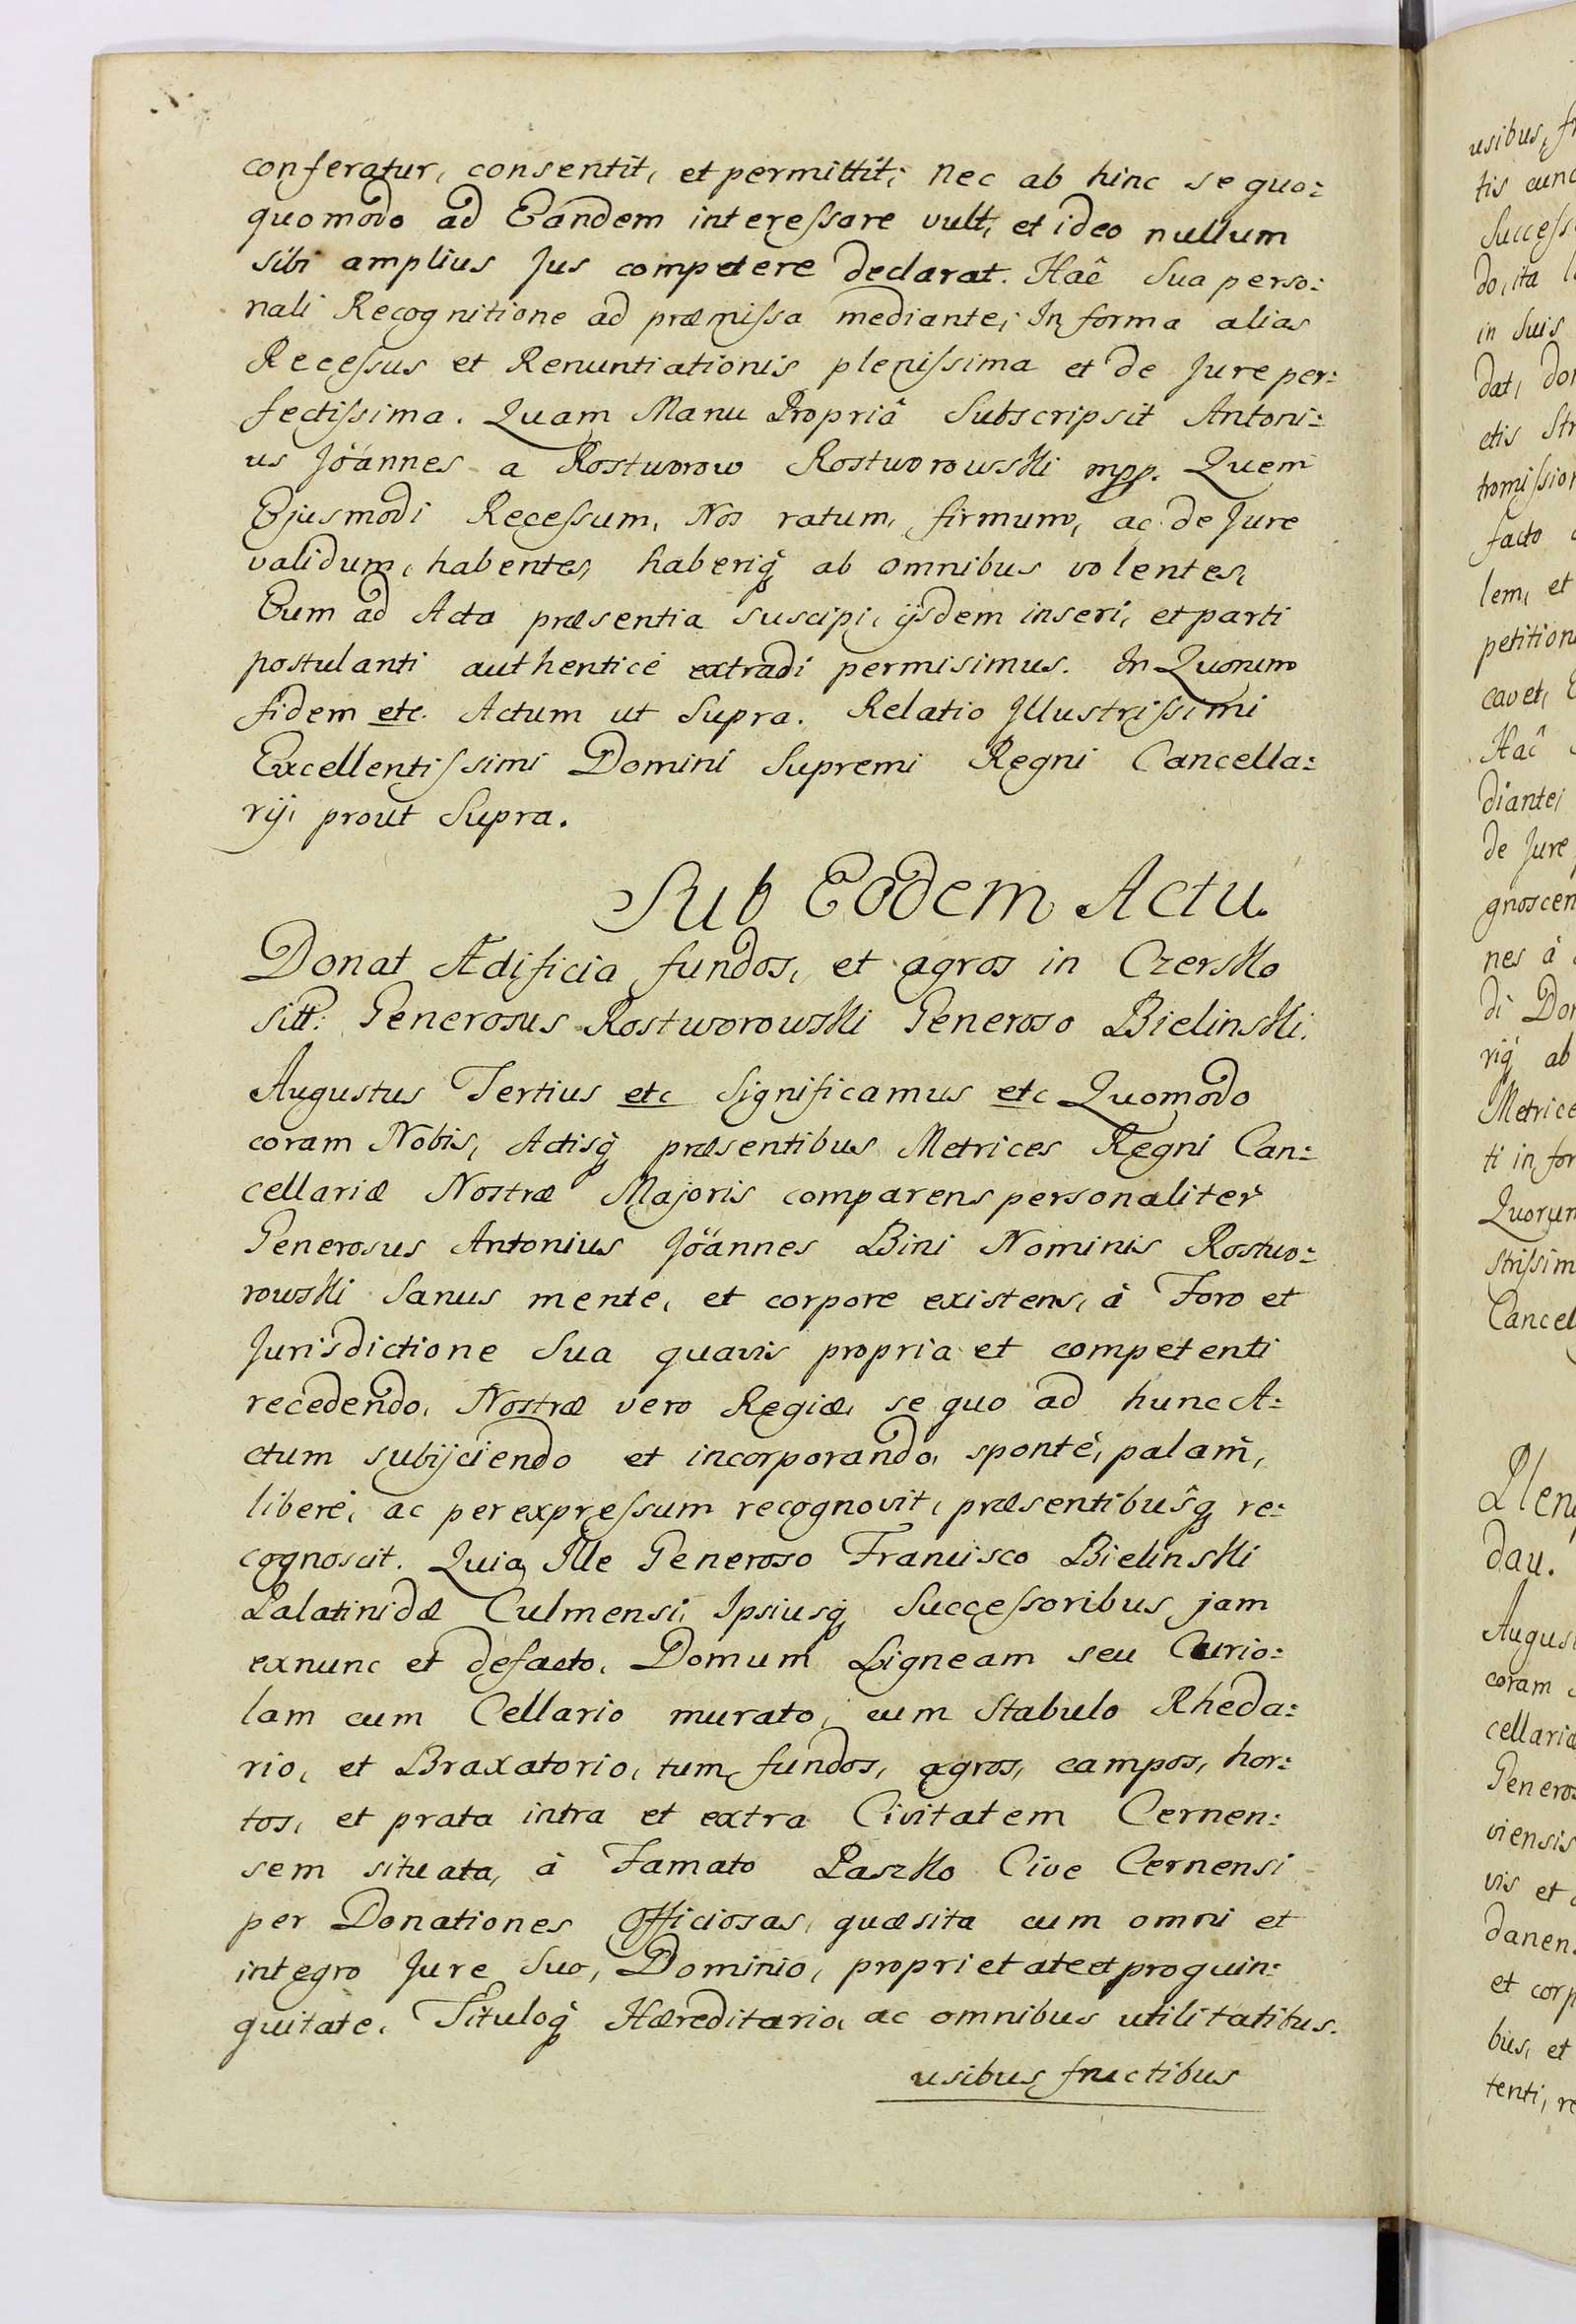 conferatur, consentit, et permittit; nec ab hinc se quo:
quomodo ad Eandem interessare vult, et ideo nullum
sibi amplius Jus competere declarat. Hac Sua perso:
nali Recognitione ad præmissa mediante; In forma alias
Recessus et Renuntiationis plenissima et de Jure per:
fectissima. Quam Manu Propriâ Subscripsit Antoni:
us Jöannes a Rostworow Rostworowski mpp. Quem
Ejusmodi Recessum, Nos ratum, firmum, ac de Jure
validum, habentes, haberiq; ab omnibus volentes,
Eum ad Acta præsentia suscipi, ijsdem inseri, et parti
postulanti authenticé extradi permisimus. In Quorum
fidem etc. Actum ut Supra. Relatio Jllustrissimi
Excellentissimi Domini Supremi Regni Cancella:
rij, prout Supra.
Sub Eodem Actu.
Donat Ædificia fundos, et agros in Czersko
sitt: Generosus Rostworowski Generoso Bielinski.
Augustus Tertius etc Significamus etc Quomodo
coram Nobis, Actisq; præsentibus Metrices Regni Can:
cellariæ Nostræ Majoris comparens personaliter
Generosus Antonius Jöannes Bini Nominis Rostwo:
rowski Sanus mente, et corpore existens, à Foro et
Jurisdictione Sua quavis propria et competenti
recedendo, Nostræ vero Regiæ, se quo ad hunc A:
ctum subijciendo et incorporando, sponté, palam,
liberé, ac per expressum recognovit, præsentibusq; re:
cognoscit. Quia Jlle Generoso Francisco Bielinski
Palatinidæ Culmensi, Ipsiusq; Successoribus jam
exnunc et defacto, Domum Ligneam seu Curio:
lam cum Cellario murato, cum Stabulo Rheda:
rio, et Braxatorio, tum fundos, agros, campos, hor:
tos, et prata intra et extra Civitatem Cernen:
sem situata, à Famato Paszko Cive Cernensi
per Donationes Officiosas, quæsita cum omni et
integro Jure Suo, Dominio, proprietate et proquin:
quitate, Tituloq; Hæreditario, ac omnibus utilitatibus.
usibus fructibus